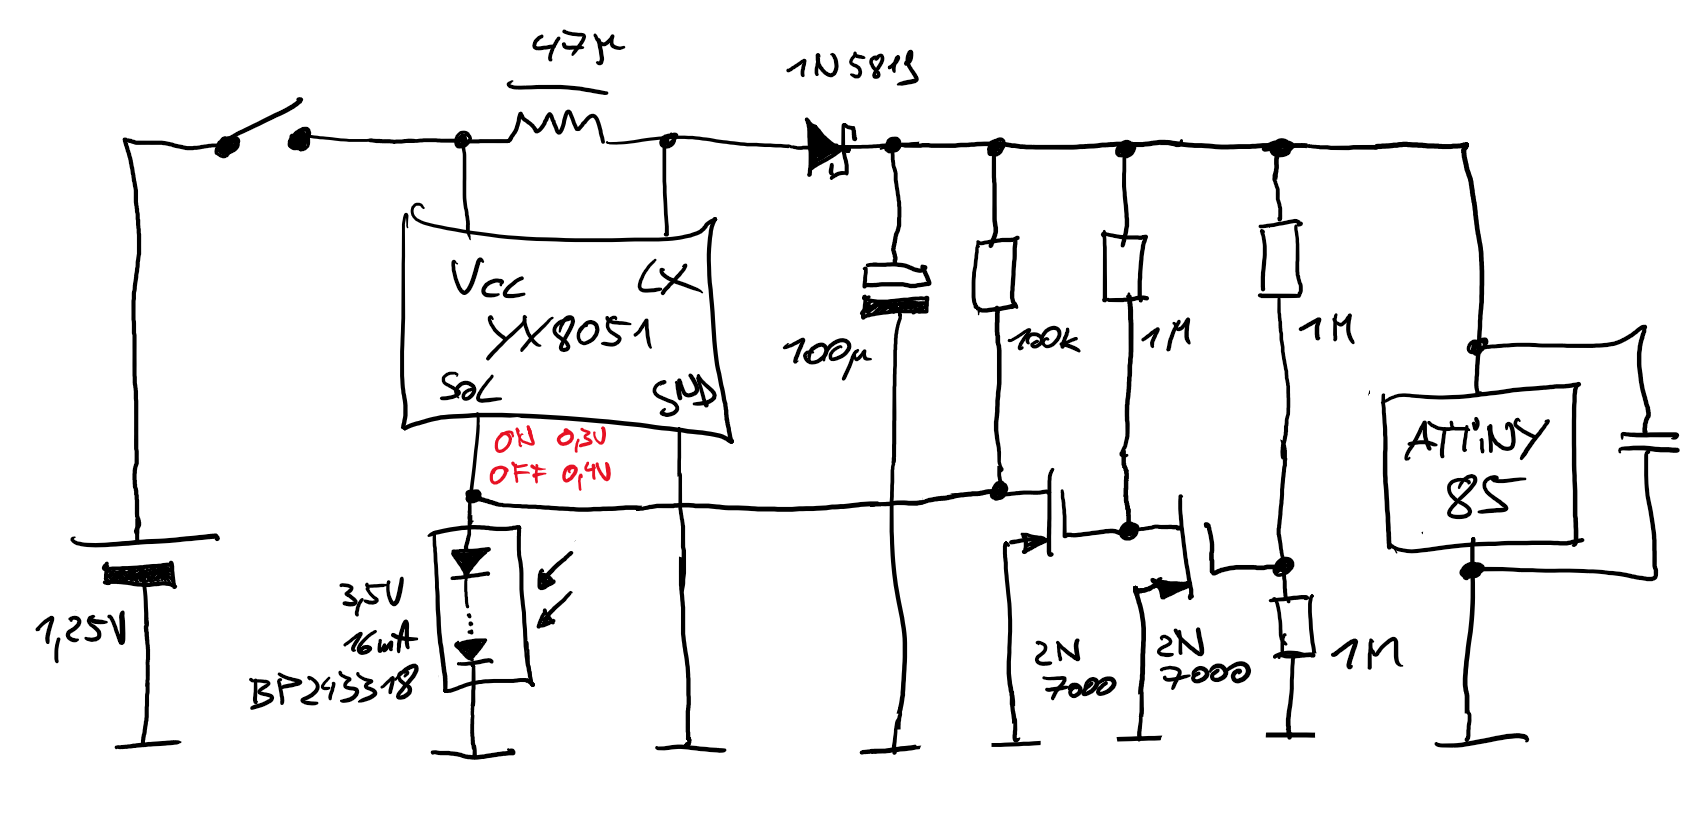 47µ
1N5819
VCC
LX
YX8051
SOL
GND
ON 0,3V
OFF 0,4V
100µ
100k
1M
1M
ATTiNY
85
1,25V
3,5V
16mA
BP243318
2N
7000
2N
7000
1M